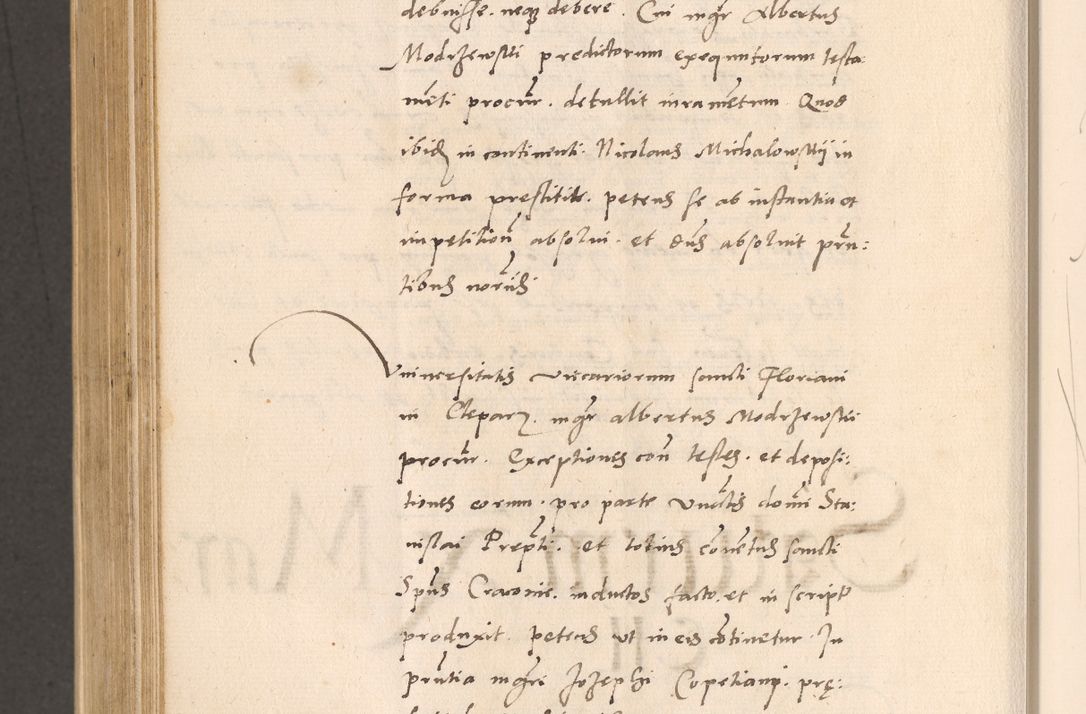 debuisse. neq3 debere. Cui mgr Albertus
Modrzewski predictorum exequutorum testa:
menti procur. detullit iuramentum Quod
ibidem in continenti. Nicolaus Michalowskij in
forma prestitit. petens se ab instantia et
impetition absolui. et dns absoluit prn:
tibus
Vniuersitatis vicariorum sancti Floriani
in Clepar. mgr albertus Modrzewski
procur. Exceptiones con testes. et deposi:
tiones eorum. pro parte domi Sta:
nislai Prepti. et totius conuentus sancti
Spus Cracouie. inductos facto. et in script
produxit. petens vt in eis continetur. In
prntia mgri Jozephi Copetianj. pre: